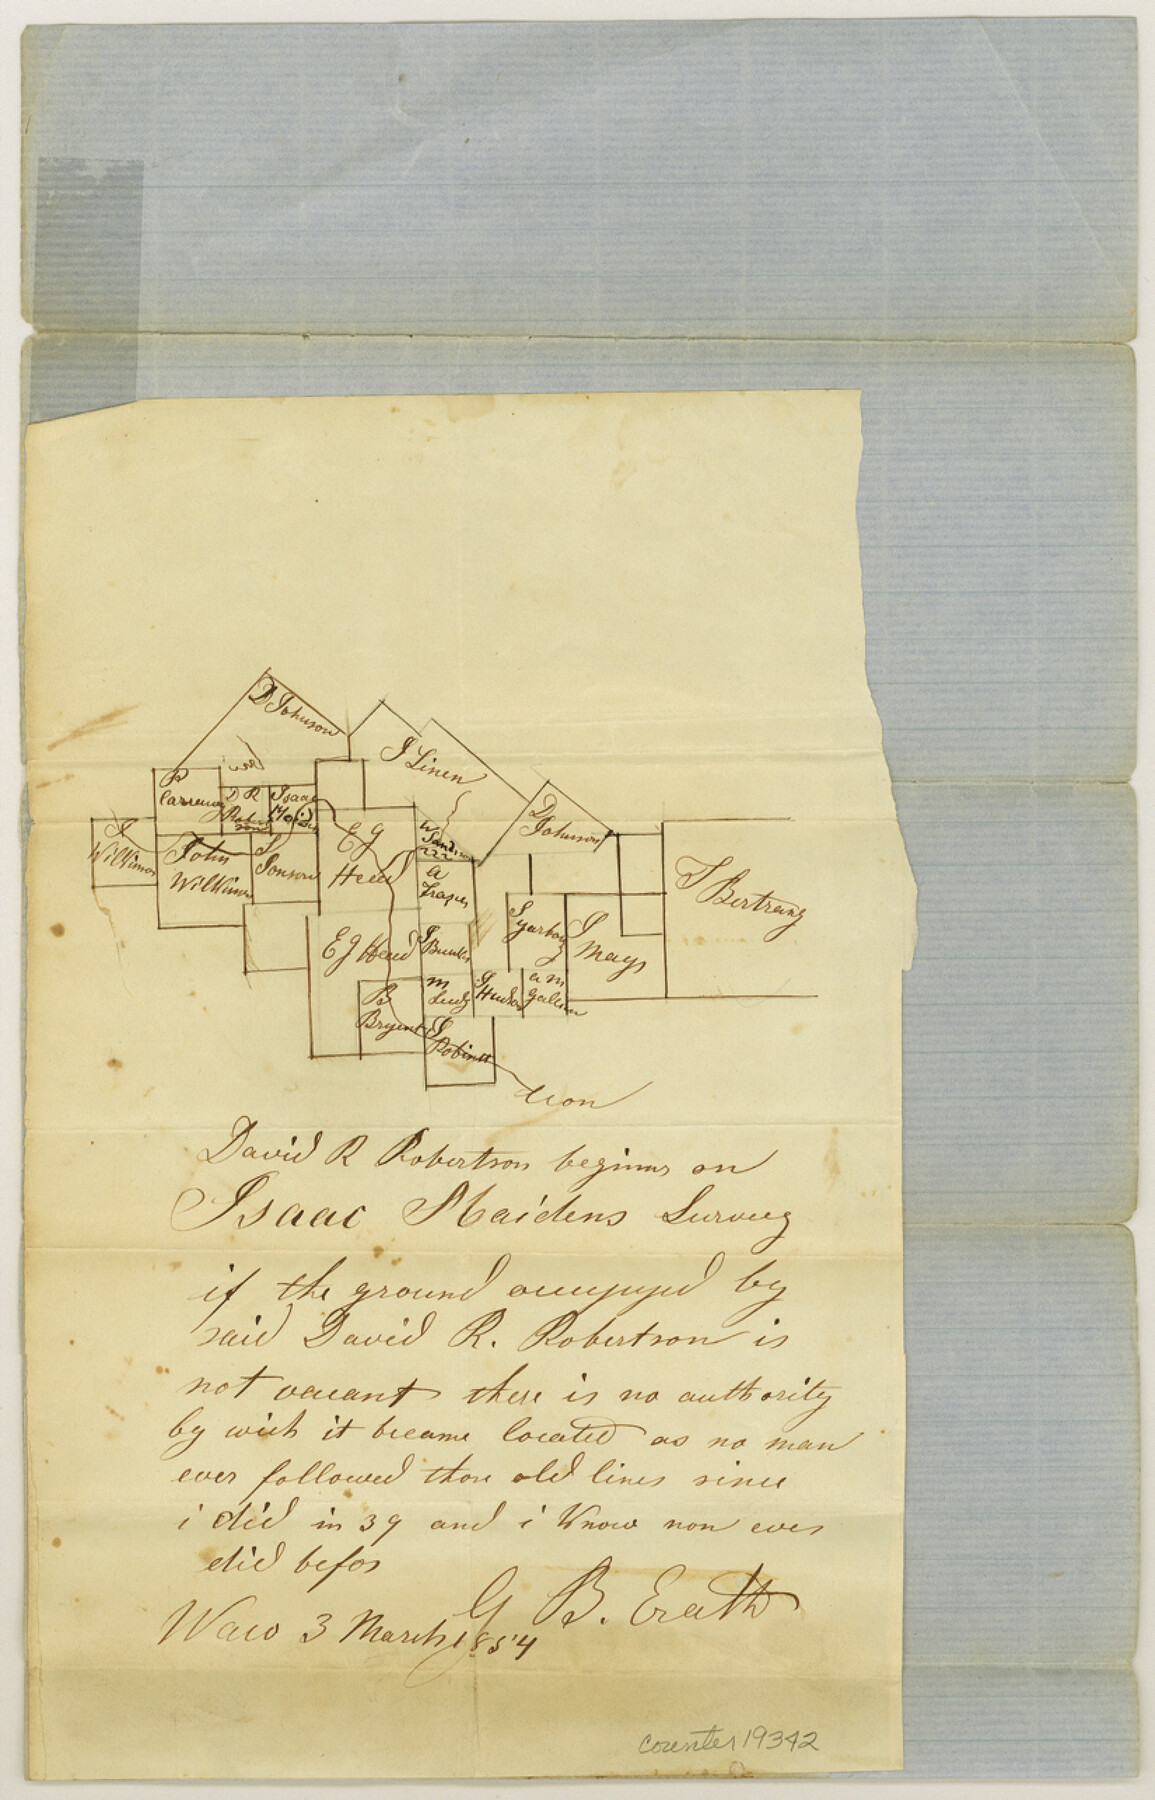 D Johnson
J Linen
D R
Isaac
J
Wilkinson
John
Wilkinson
E G
Head
W
a
Frazier
D
Johnson
T
Bertrang
S
Mays
E G Head
B
Bryant
M
G
a m
S
Robinett
Leon
David R Robertson begins on
Isaac Maidens Survey
if the ground occupyed by
said David R. Robertson is
not vacant there is no authority
by wich it became located as no man
ever followed those old lines since
i did in 39 and i Know non ever
did befor
G B. Erath
Waco 3 March 1854
counter 19342